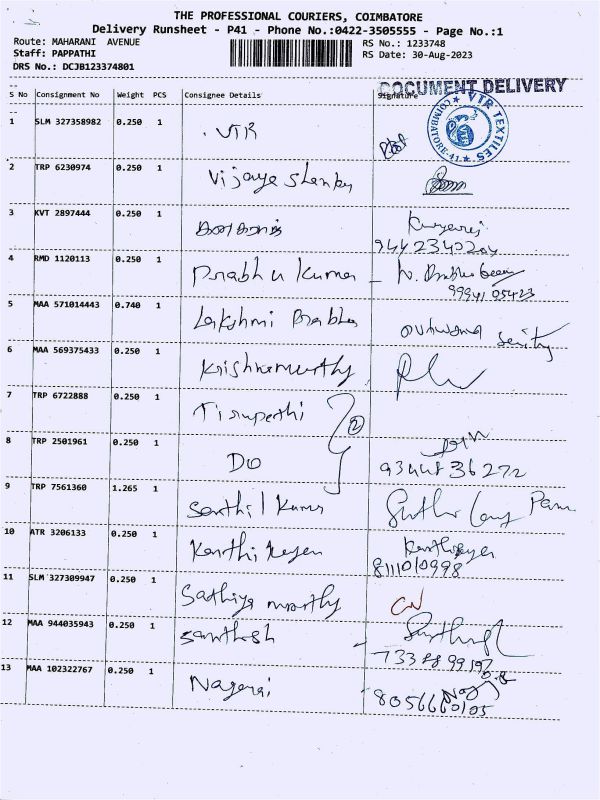 THE PROFESSIONAL COURIERS, COIMBATORE
Delivery Runsheet - P41 - Phone No.:0422-3505555 - Page No.:1
Route: MAHARANI AVENUE
RS No.: 1233748
Staff: PAPPATHI
RS Date: 30-Aug-2023
DRS No.: DCJB123374801
DOCUMENT DELIVERY
S No Consignment No Weight PCS Consignee Details Signature
VTR TEXTILES
COIMBATORE-41
1 SLM 327358982 0.250 1 VTR
2 TRP 6230974 0.250 1 Vijaya
3 KVT 2897444 0.250 1
4 RMD 1120113 0.250 1 Prabhu Kumar
99941 05423
5 MAA 571014443 0.740 1 Lakshmi Prabha
6 MAA 569375433 0.250 1 Krishnamurthy
7 TRP 6722888 0.250 1 Tirupathi
2
8 TRP 2501961 0.250 1 DO
93448 36272
9 TRP 7561360 1.265 1 Senthil Kumar
10 ATR 3206133 0.250 1 Karthikeyen Karthikeyen
8111010998
11 SLM 327309947 0.250 1 Sathiya moorthy
12 MAA 944035943 0.250 1 Santhosh
13 MAA 102322767 0.250 1 Nagaraj